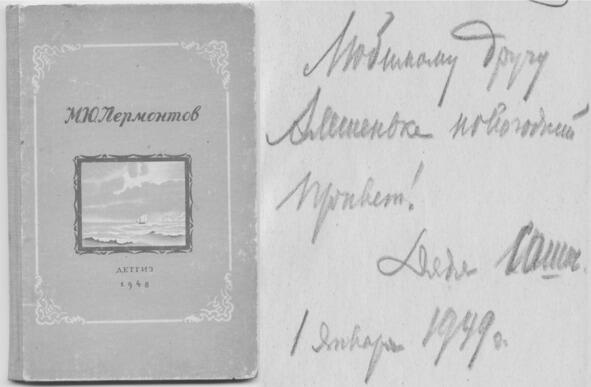 М.Ю. Лермонтов
ДЕТГИЗ
1948
Любимому другу
Алёшеньке новогодний
привет!
Дядя Саша.
1 января 1949 г.